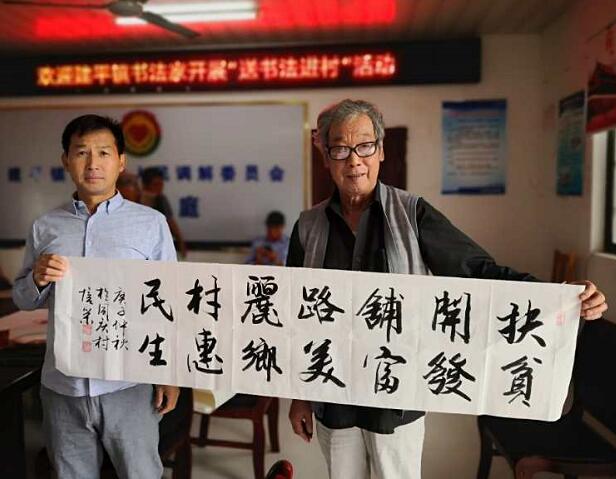 欢迎建平镇书法家开展“送书法进村”活动
调解委员会
庭
扶貧
開發
鋪富
路美
麗鄉
村惠
民生
庚子仲秋
於同庆村